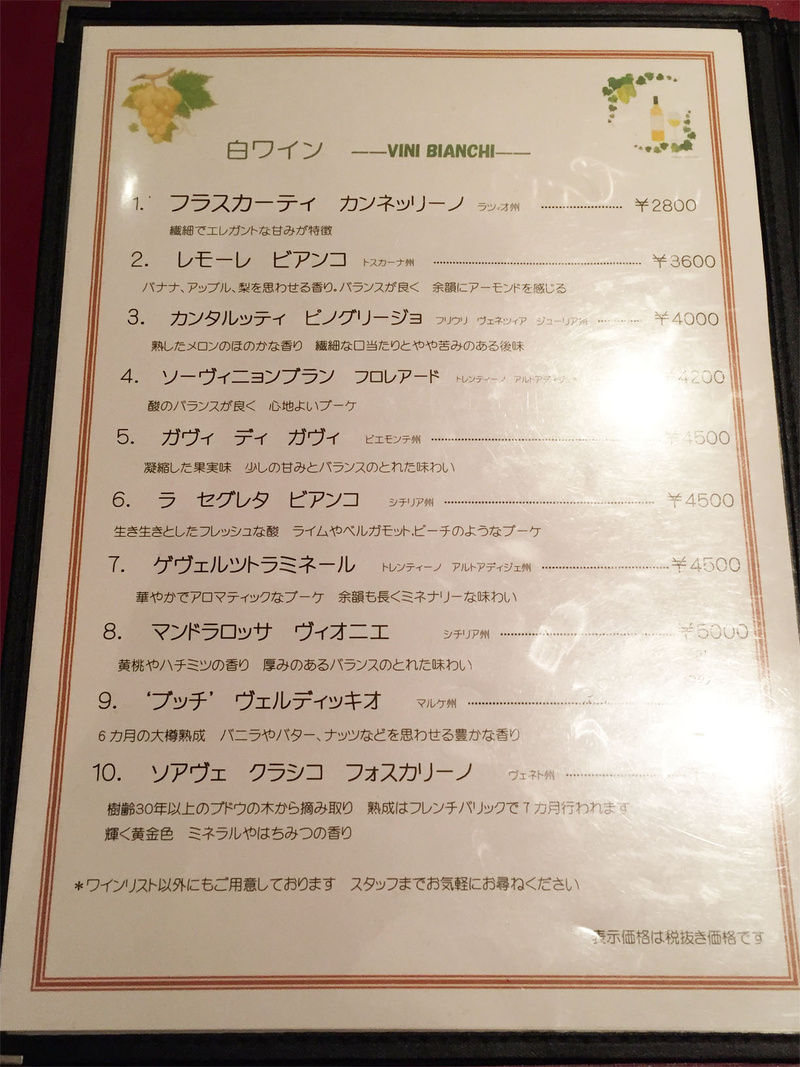 白ワイン ——VINI BIANCHI——
1. フラスカーティ カンネッリーノ ラツィオ州 ¥2800
繊細でエレガントな甘みが特徴
2. レモーレ ビアンコ トスカーナ州 ¥3600
バナナ、アップル、梨を思わせる香り。バランスが良く 余韻にアーモンドを感じる
3. カンタルッティ ピノグリージョ フリウリ ヴェネツィア ジューリア州 ¥4000
熟したメロンのほのかな香り 繊細な口当たりとやや苦みのある後味
4. ソーヴィニョンブラン フロレアード トレンティーノ アルトアディジェ州 ¥4200
酸のバランスが良く 心地よいブーケ
5. ガヴィ ディ ガヴィ ピエモンテ州 ¥4500
凝縮した果実味 少しの甘みとバランスのとれた味わい
6. ラ セグレタ ビアンコ シチリア州 ¥4500
生き生きとしたフレッシュな酸 ライムやベルガモット、ピーチのようなブーケ
7. ゲヴェルツトラミネール トレンティーノ アルトアディジェ州 ¥4500
華やかでアロマティックなブーケ 余韻も長くミネラリーな味わい
8. マンドラロッサ ヴィオニエ シチリア州 ¥5000
黄桃やハチミツの香り 厚みのあるバランスのとれた味わい
9. ‘プッチ’ ヴェルディッキオ マルケ州
6カ月の大樽熟成 バニラやバター、ナッツなどを思わせる豊かな香り
10. ソアヴェ クラシコ フォスカリーノ ヴェネト州
樹齢30年以上のブドウの木から摘み取り 熟成はフレンチバリックで7カ月行われます
輝く黄金色 ミネラルやはちみつの香り
*ワインリスト以外にもご用意しております スタッフまでお気軽にお尋ねください
表示価格は税抜き価格です